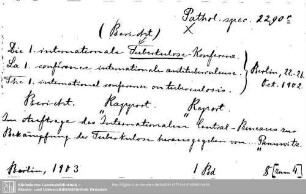 Pathol. spec. 2290c
(Bericht) X
Die 1. internationale Tuberkulose-Konferenz.
La 1. conférence internationale antituberculeuse.
The 1. international conference on tuberculosis.
Berlin, 22.-26.
Oct. 1902.
Bericht. Rapport. Report.
Im Auftrage des Internationalen Central-Bureaus zur
Bekämpfung der Tuberkulose herausgegeben von Pannwitz.
Berlin, 1903 1 Bd 8°